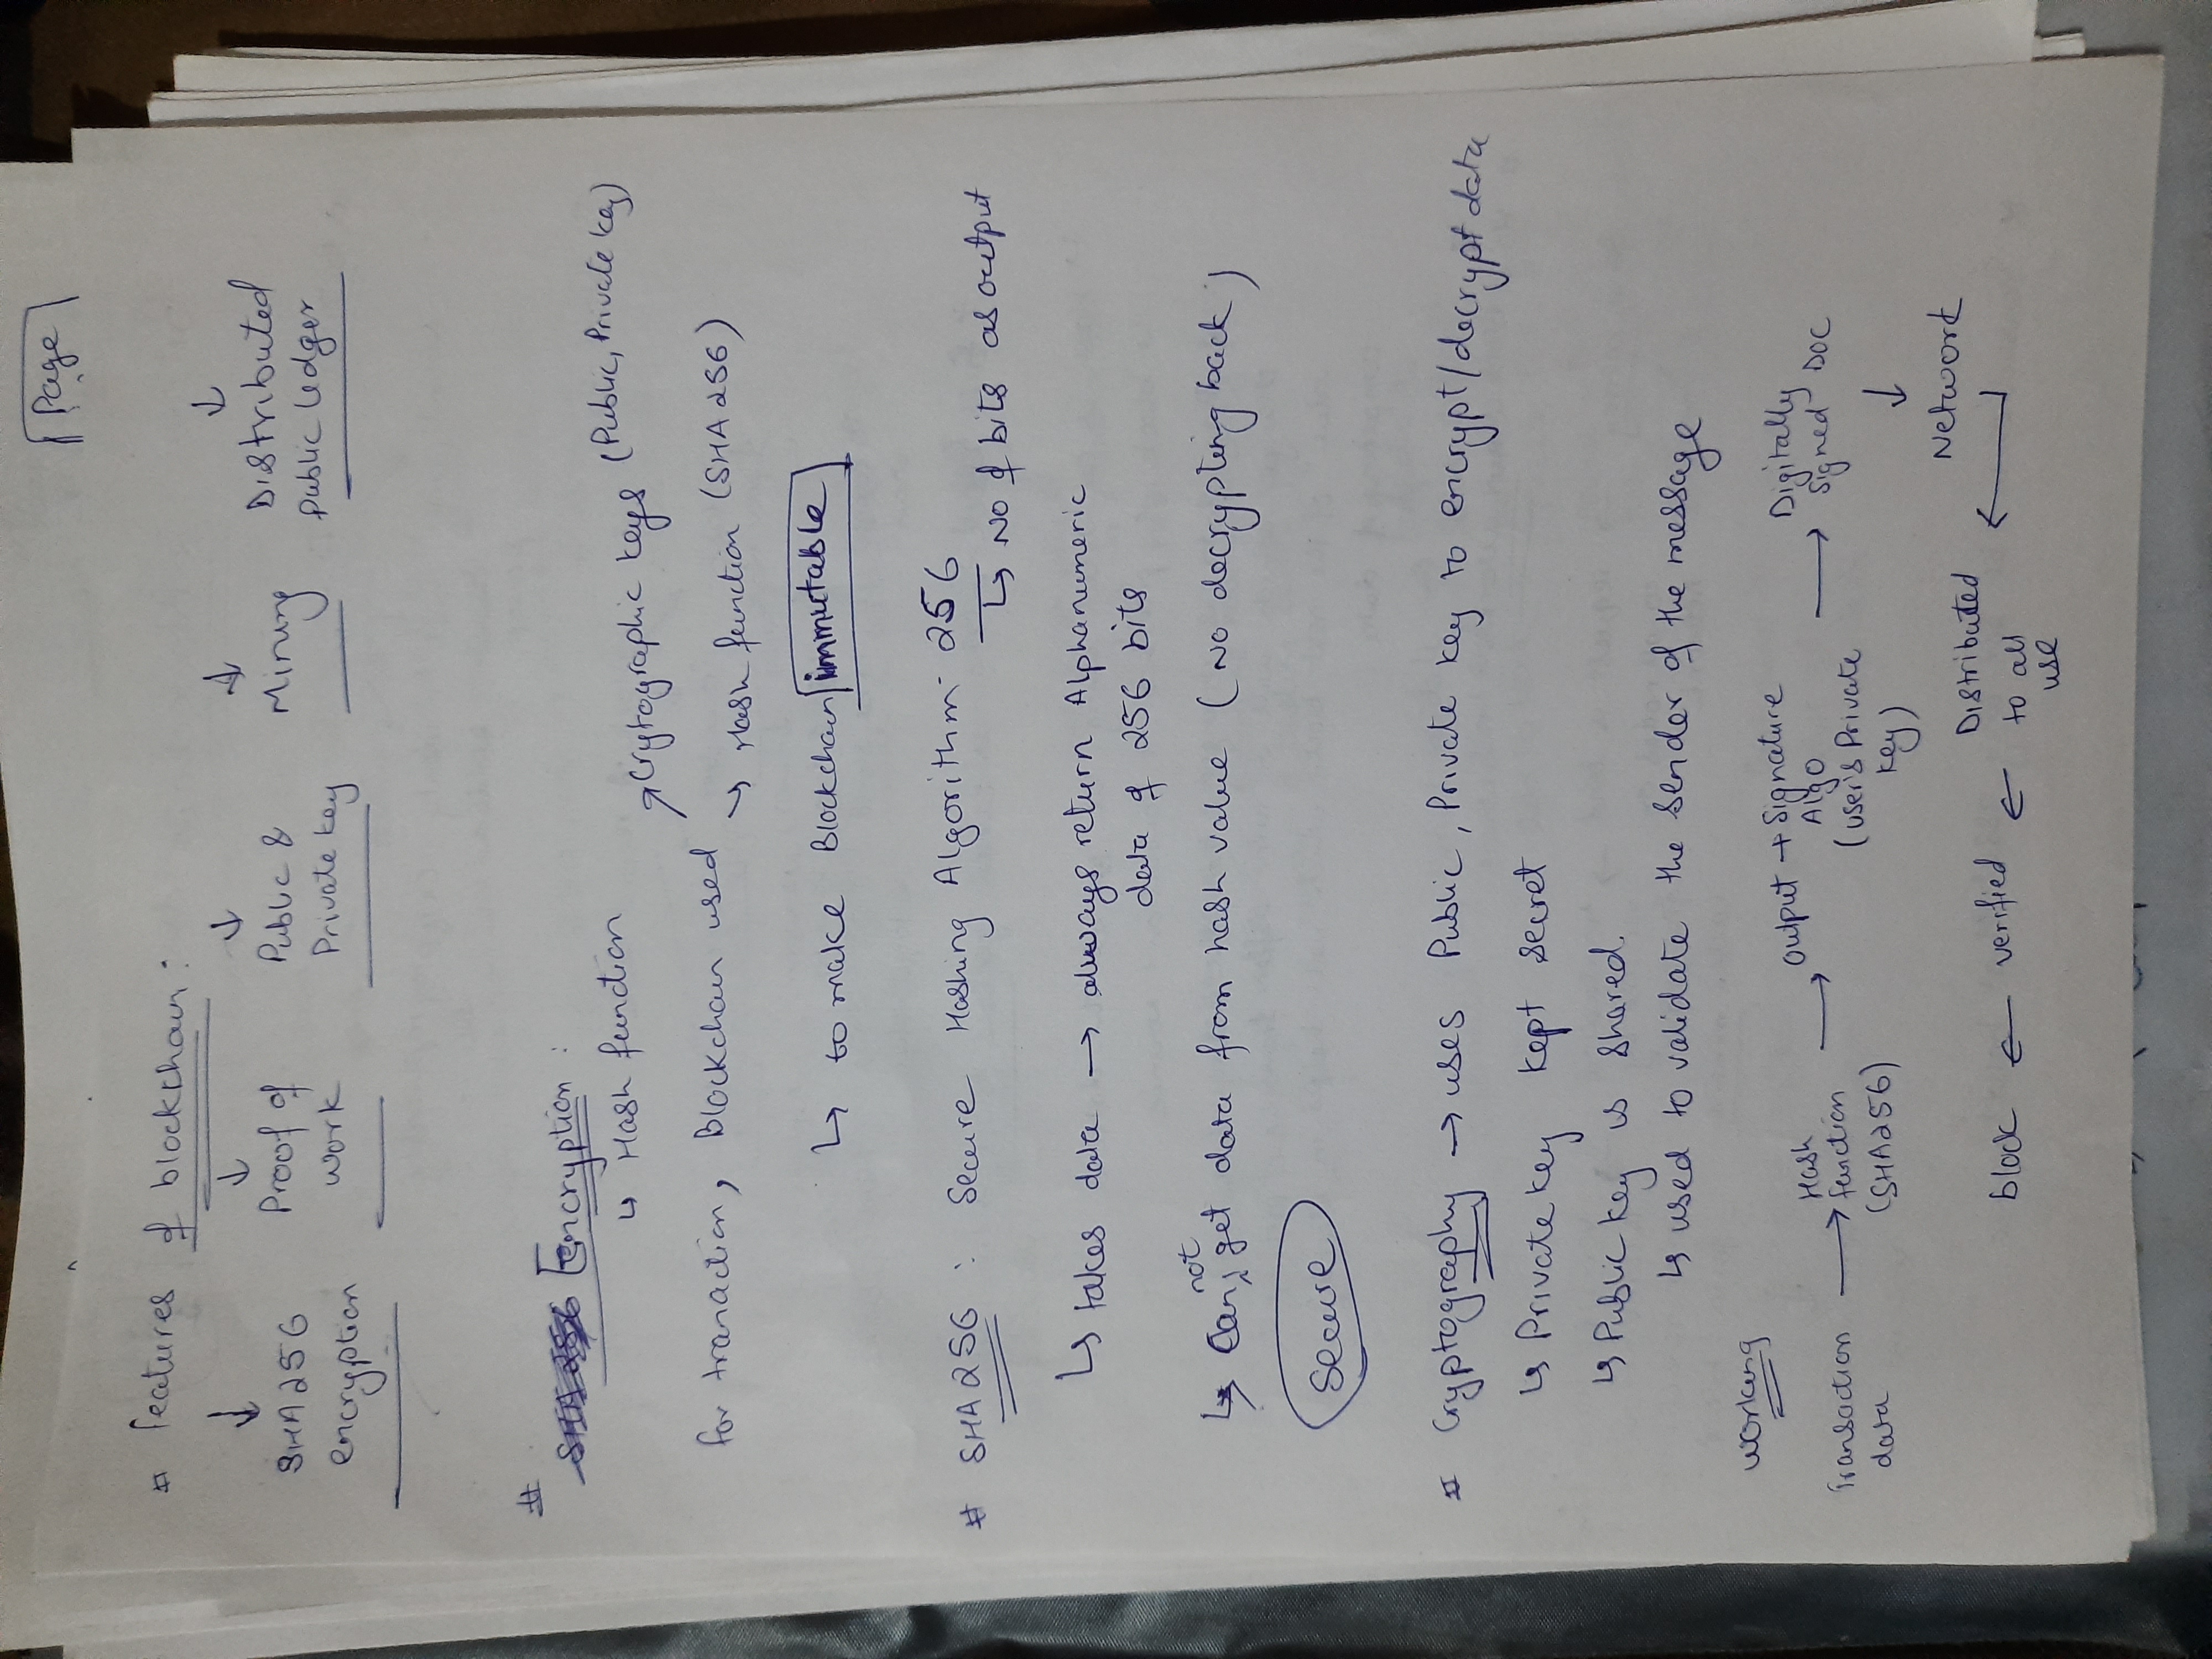 Page
# features of blockchain:
↓ ↓ ↓ ↓ ↓
SHA256 Proof of Public & Mining Distributed
encryption work Private key Public ledger
# Encryption :
↳ Hash function
for tranaction, Blockchain used
↗ Crytographic keys (Public, Private key)
↘ Hash function (SHA256)
↳ to make Blockchain immutable
# SHA256 : Secure Hashing Algorithm - 256
↳ No of bits as output
↳ takes data → always return Alphanumeric
data of 256 bits
↳ Can not get data from hash value (No decrypting back)
Secure
# Cryptography → uses Public, Private key to encrypt/decrypt data
↳ Private key kept secret
↳ Public key is shared.
↳ used to validate the sender of the message
Working
Transaction data → Hash function (SHA256) → Output + Signature Algo (user's Private key) → Digitally Signed Doc
↓
Network
block ← verified ← Distributed to all use ←